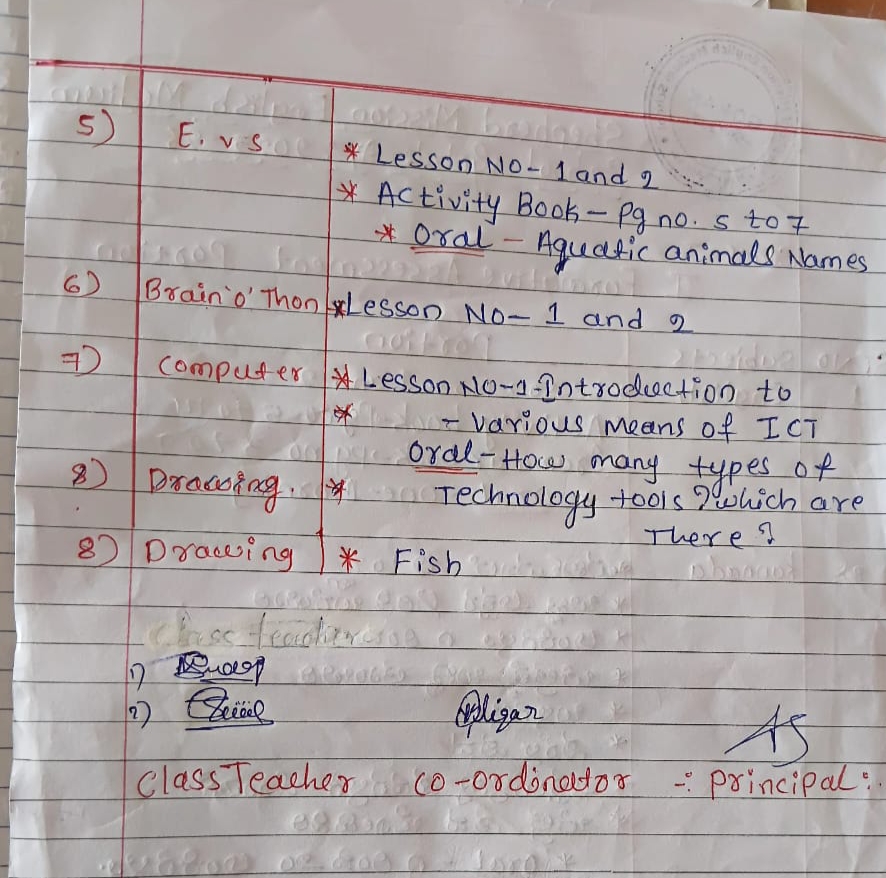 5) E.v.s * Lesson No- 1 and 2
* Activity Book - Pg no. 5 to 7
* Oral - Aquatic animals Names
6) Brain 'o' Thon * Lesson No- 1 and 2
7) Computer * Lesson No-1-Introduction to
* - various Means of ICT
Oral - How many types of
8) Drawing. * Technology tools ? which are
There ?
8) Drawing * Fish
Class teacher
1)
2)
Class Teacher Co-ordinator -: principal :.